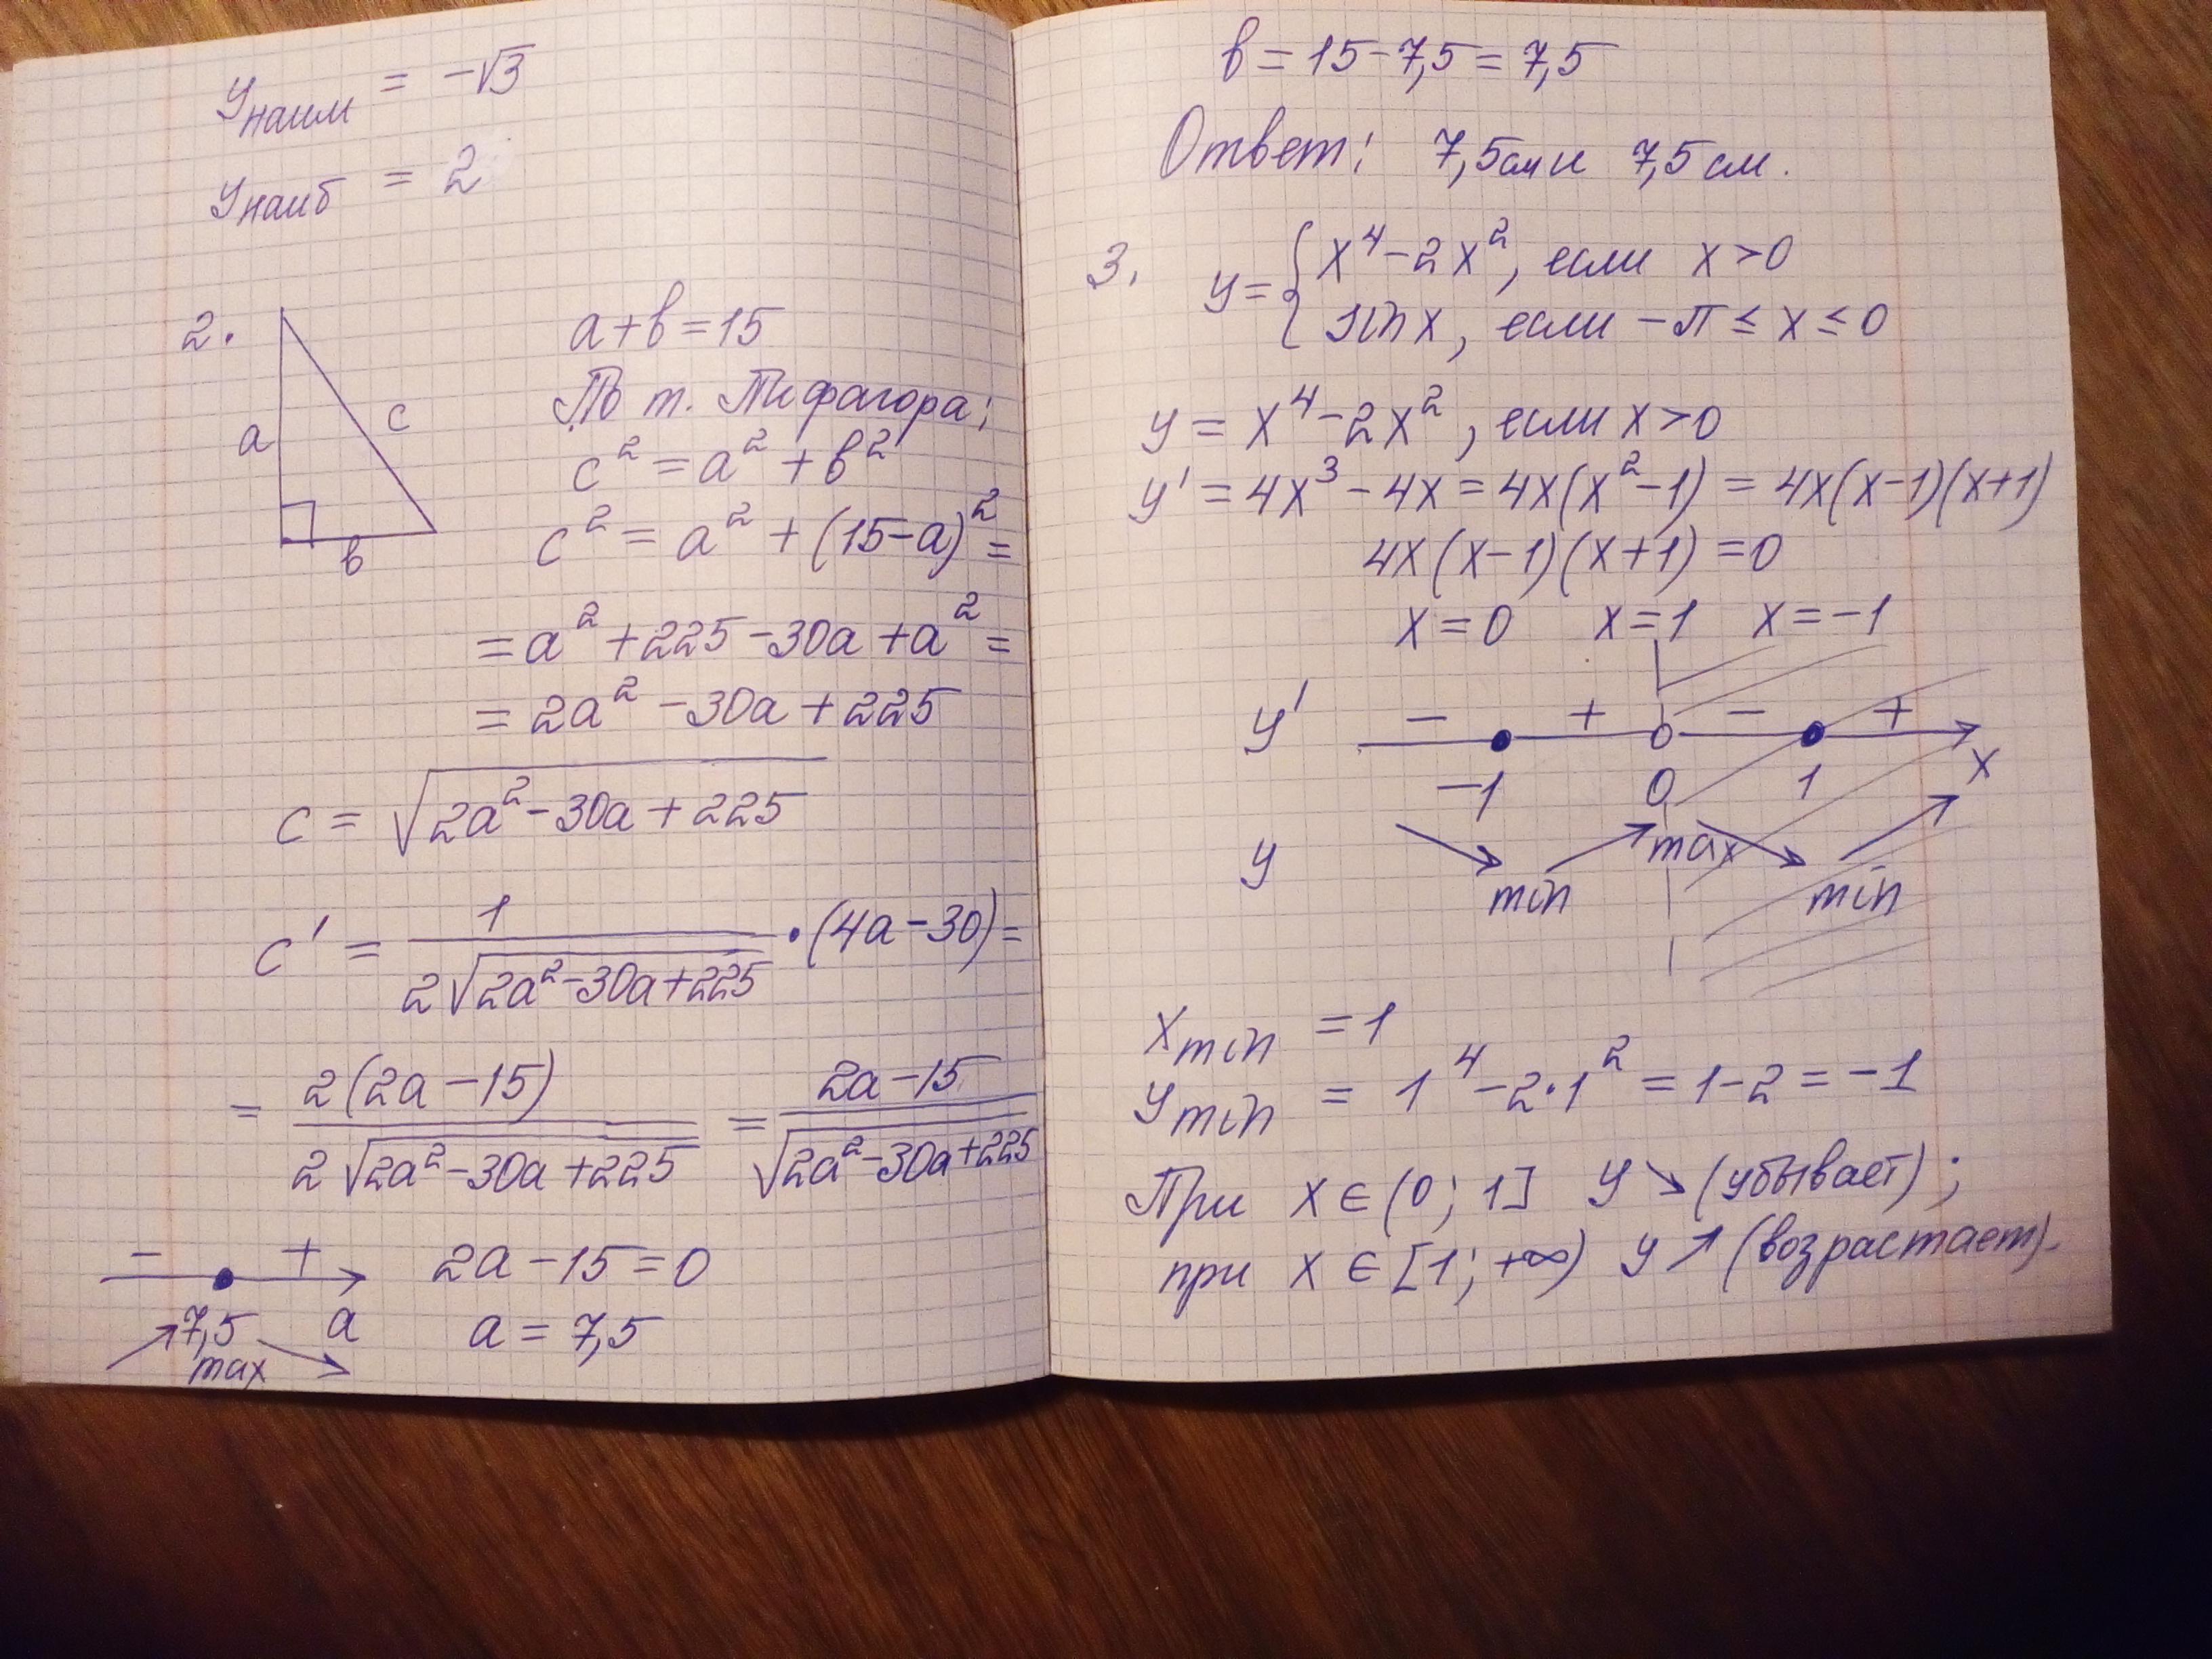 Yнаим = -√3
Yнаиб = 2
2.
a
c
в
a+в=15
По т. Пифагора:
c² = a² + в²
c² = a² + (15-a)² =
= a² + 225 - 30a + a² =
= 2a² - 30a + 225
c = √(2a² - 30a + 225)
c' = 1/(2√(2a² - 30a + 225)) • (4a - 30) =
= 2(2a - 15)/(2√(2a² - 30a + 225)) = (2a - 15)/√(2a² - 30a + 225)
- + 2a - 15 = 0
7,5 a a = 7,5
max
в = 15 - 7,5 = 7,5
Ответ: 7,5см и 7,5 см.
3. y = { x⁴ - 2x², если x > 0
sin x, если -π ≤ x ≤ 0
y = x⁴ - 2x², если x > 0
y' = 4x³ - 4x = 4x(x² - 1) = 4x(x-1)(x+1)
4x(x-1)(x+1) = 0
x = 0 x = 1 x = -1
y' - + - +
-1 0 1 x
y max
min min
Xmin = 1
Ymin = 1⁴ - 2•1² = 1 - 2 = -1
При x ∈ (0; 1] y ↘ (убывает);
при x ∈ [1; +∞) y ↗ (возрастает).